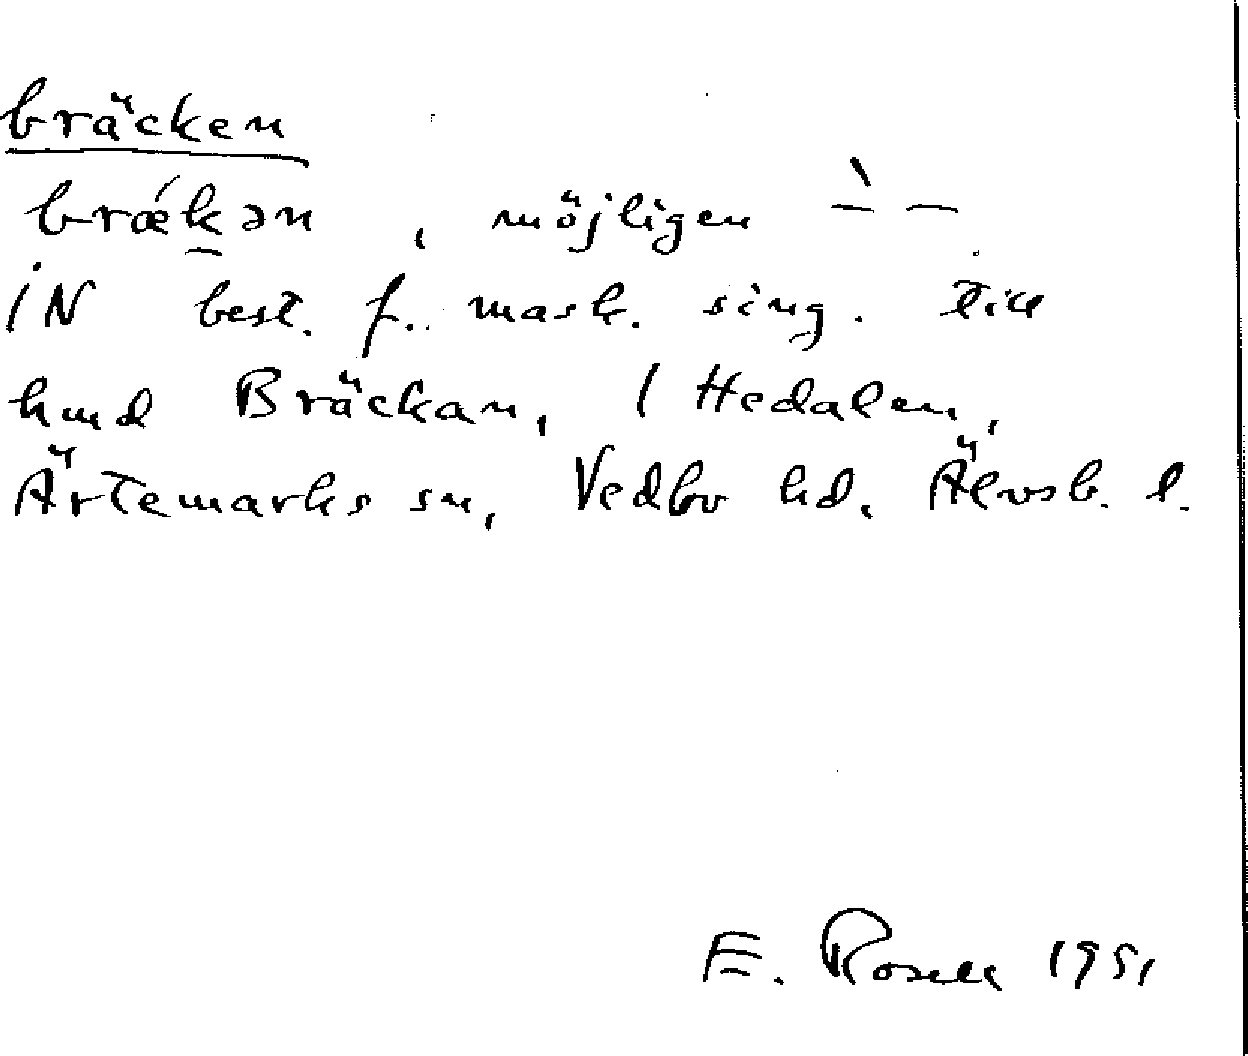 bräcken
brǽk̲ən, möjligen –̀ –
iN best. f. mask. sing. till
hund Bräckan, i Hedalen,
Ärtemarks sn, Vedbo hd. Älvsb. l.
E. Rosell 1951